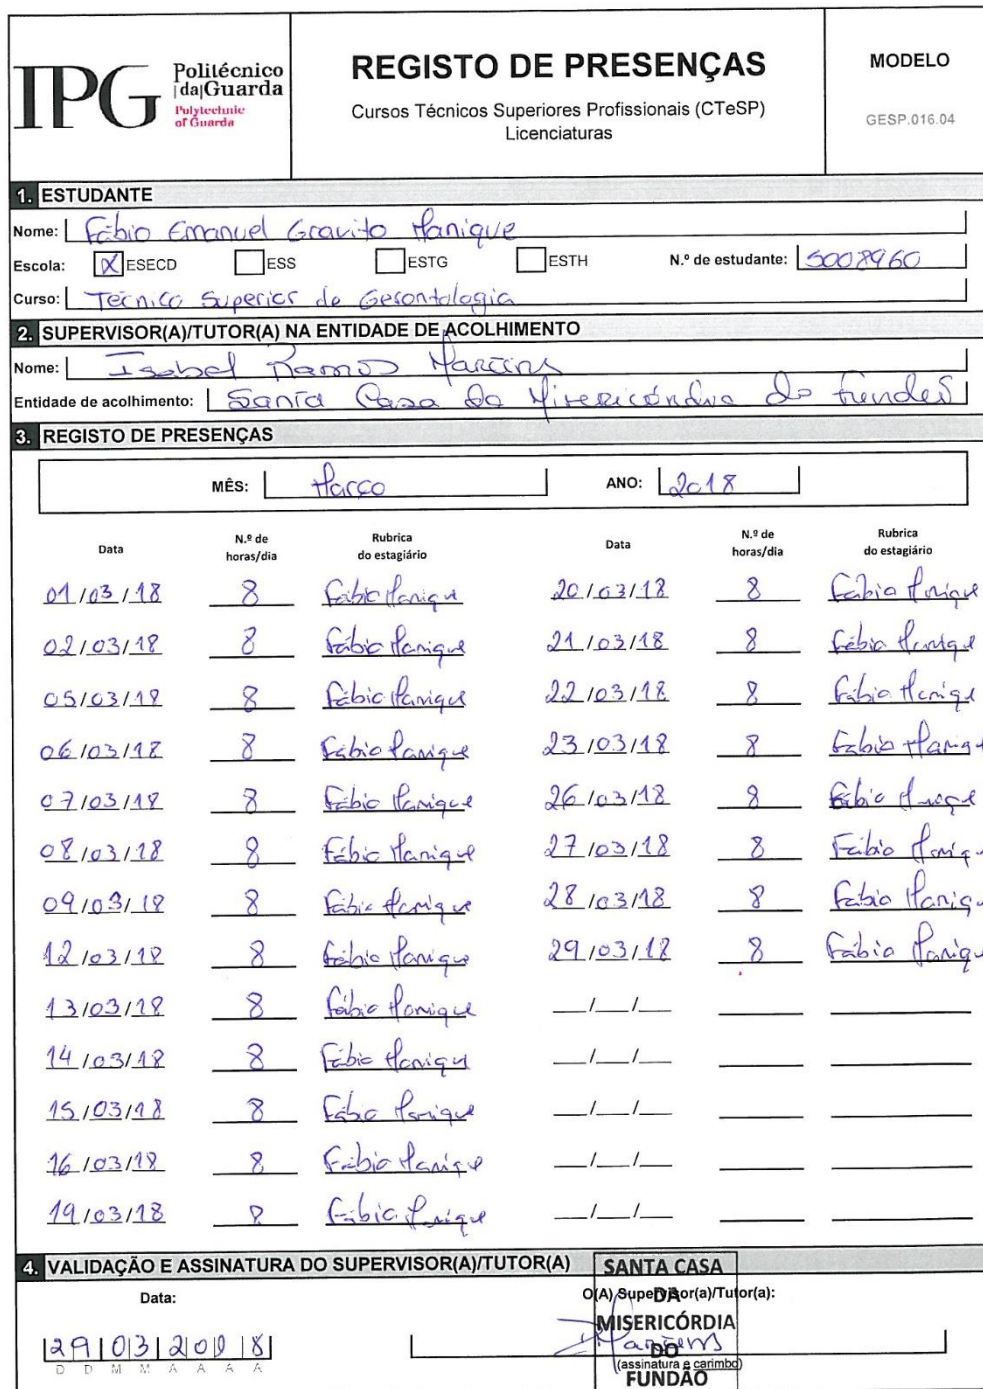 IPG Politécnico |da|Guarda Polytechnic of Guarda
REGISTO DE PRESENÇAS
Cursos Técnicos Superiores Profissionais (CTeSP)
Licenciaturas
MODELO
GESP.016.04
1. ESTUDANTE
Nome: Fábio Emanuel Gravito Manique
Escola: X ESECD ESS ESTG ESTH N.º de estudante: 5008960
Curso: Técnico Superior de Gerontologia
2. SUPERVISOR(A)/TUTOR(A) NA ENTIDADE DE ACOLHIMENTO
Nome: Isabel Ramos Martins
Entidade de acolhimento: Santa Casa da Misericórdia do Fundão
3. REGISTO DE PRESENÇAS
MÊS: Março ANO: 2018
Data N.º de horas/dia Rubrica do estagiário Data N.º de horas/dia Rubrica do estagiário
01/03/18 8 Fábio Manique 20/03/18 8 Fábio Manique
02/03/18 8 Fábio Manique 21/03/18 8 Fábio Manique
05/03/18 8 Fábio Manique 22/03/18 8 Fábio Manique
06/03/18 8 Fábio Manique 23/03/18 8 Fábio Manique
07/03/18 8 Fábio Manique 26/03/18 8 Fábio Manique
08/03/18 8 Fábio Manique 27/03/18 8 Fábio Manique
09/03/18 8 Fábio Manique 28/03/18 8 Fábio Manique
12/03/18 8 Fábio Manique 29/03/18 8 Fábio Manique
13/03/18 8 Fábio Manique __/__/__
14/03/18 8 Fábio Manique __/__/__
15/03/18 8 Fábio Manique __/__/__
16/03/18 8 Fábio Manique __/__/__
19/03/18 8 Fábio Manique __/__/__
4. VALIDAÇÃO E ASSINATURA DO SUPERVISOR(A)/TUTOR(A)
Data: O(A) Supervisor(a)/Tutor(a):
29 03 2018
D D M M A A A A
SANTA CASA
DA
MISERICÓRDIA
DO
FUNDÃO
IMartins
(assinatura e carimbo)